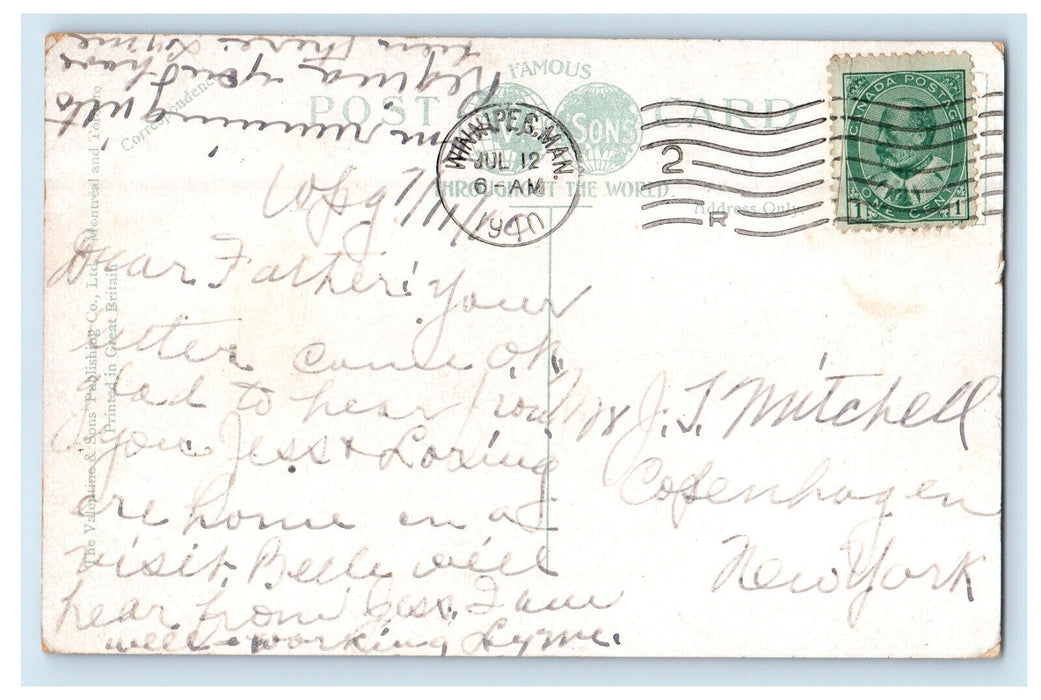 POST CARD
FAMOUS
SONS
THROUGHOUT THE WORLD
Correspondence
Address Only.
The Valentine & Sons' Publishing Co., Ltd., Montreal and Toronto
Printed in Great Britain
WINNIPEG, MAN.
JUL 12
6-AM
19
2
R
CANADA POSTAGE
ONE CENT
1 1
Wpg 7/11/
Dear Father: Your
letter came OK
glad to hear from
you. Jess & Loring
are home on a
visit. Belle will
hear from Jess. I am
well & working Lyme.
am running into
Regina you have
been there. Lyme
Mr J. T. Mitchell
Copenhagen
New York